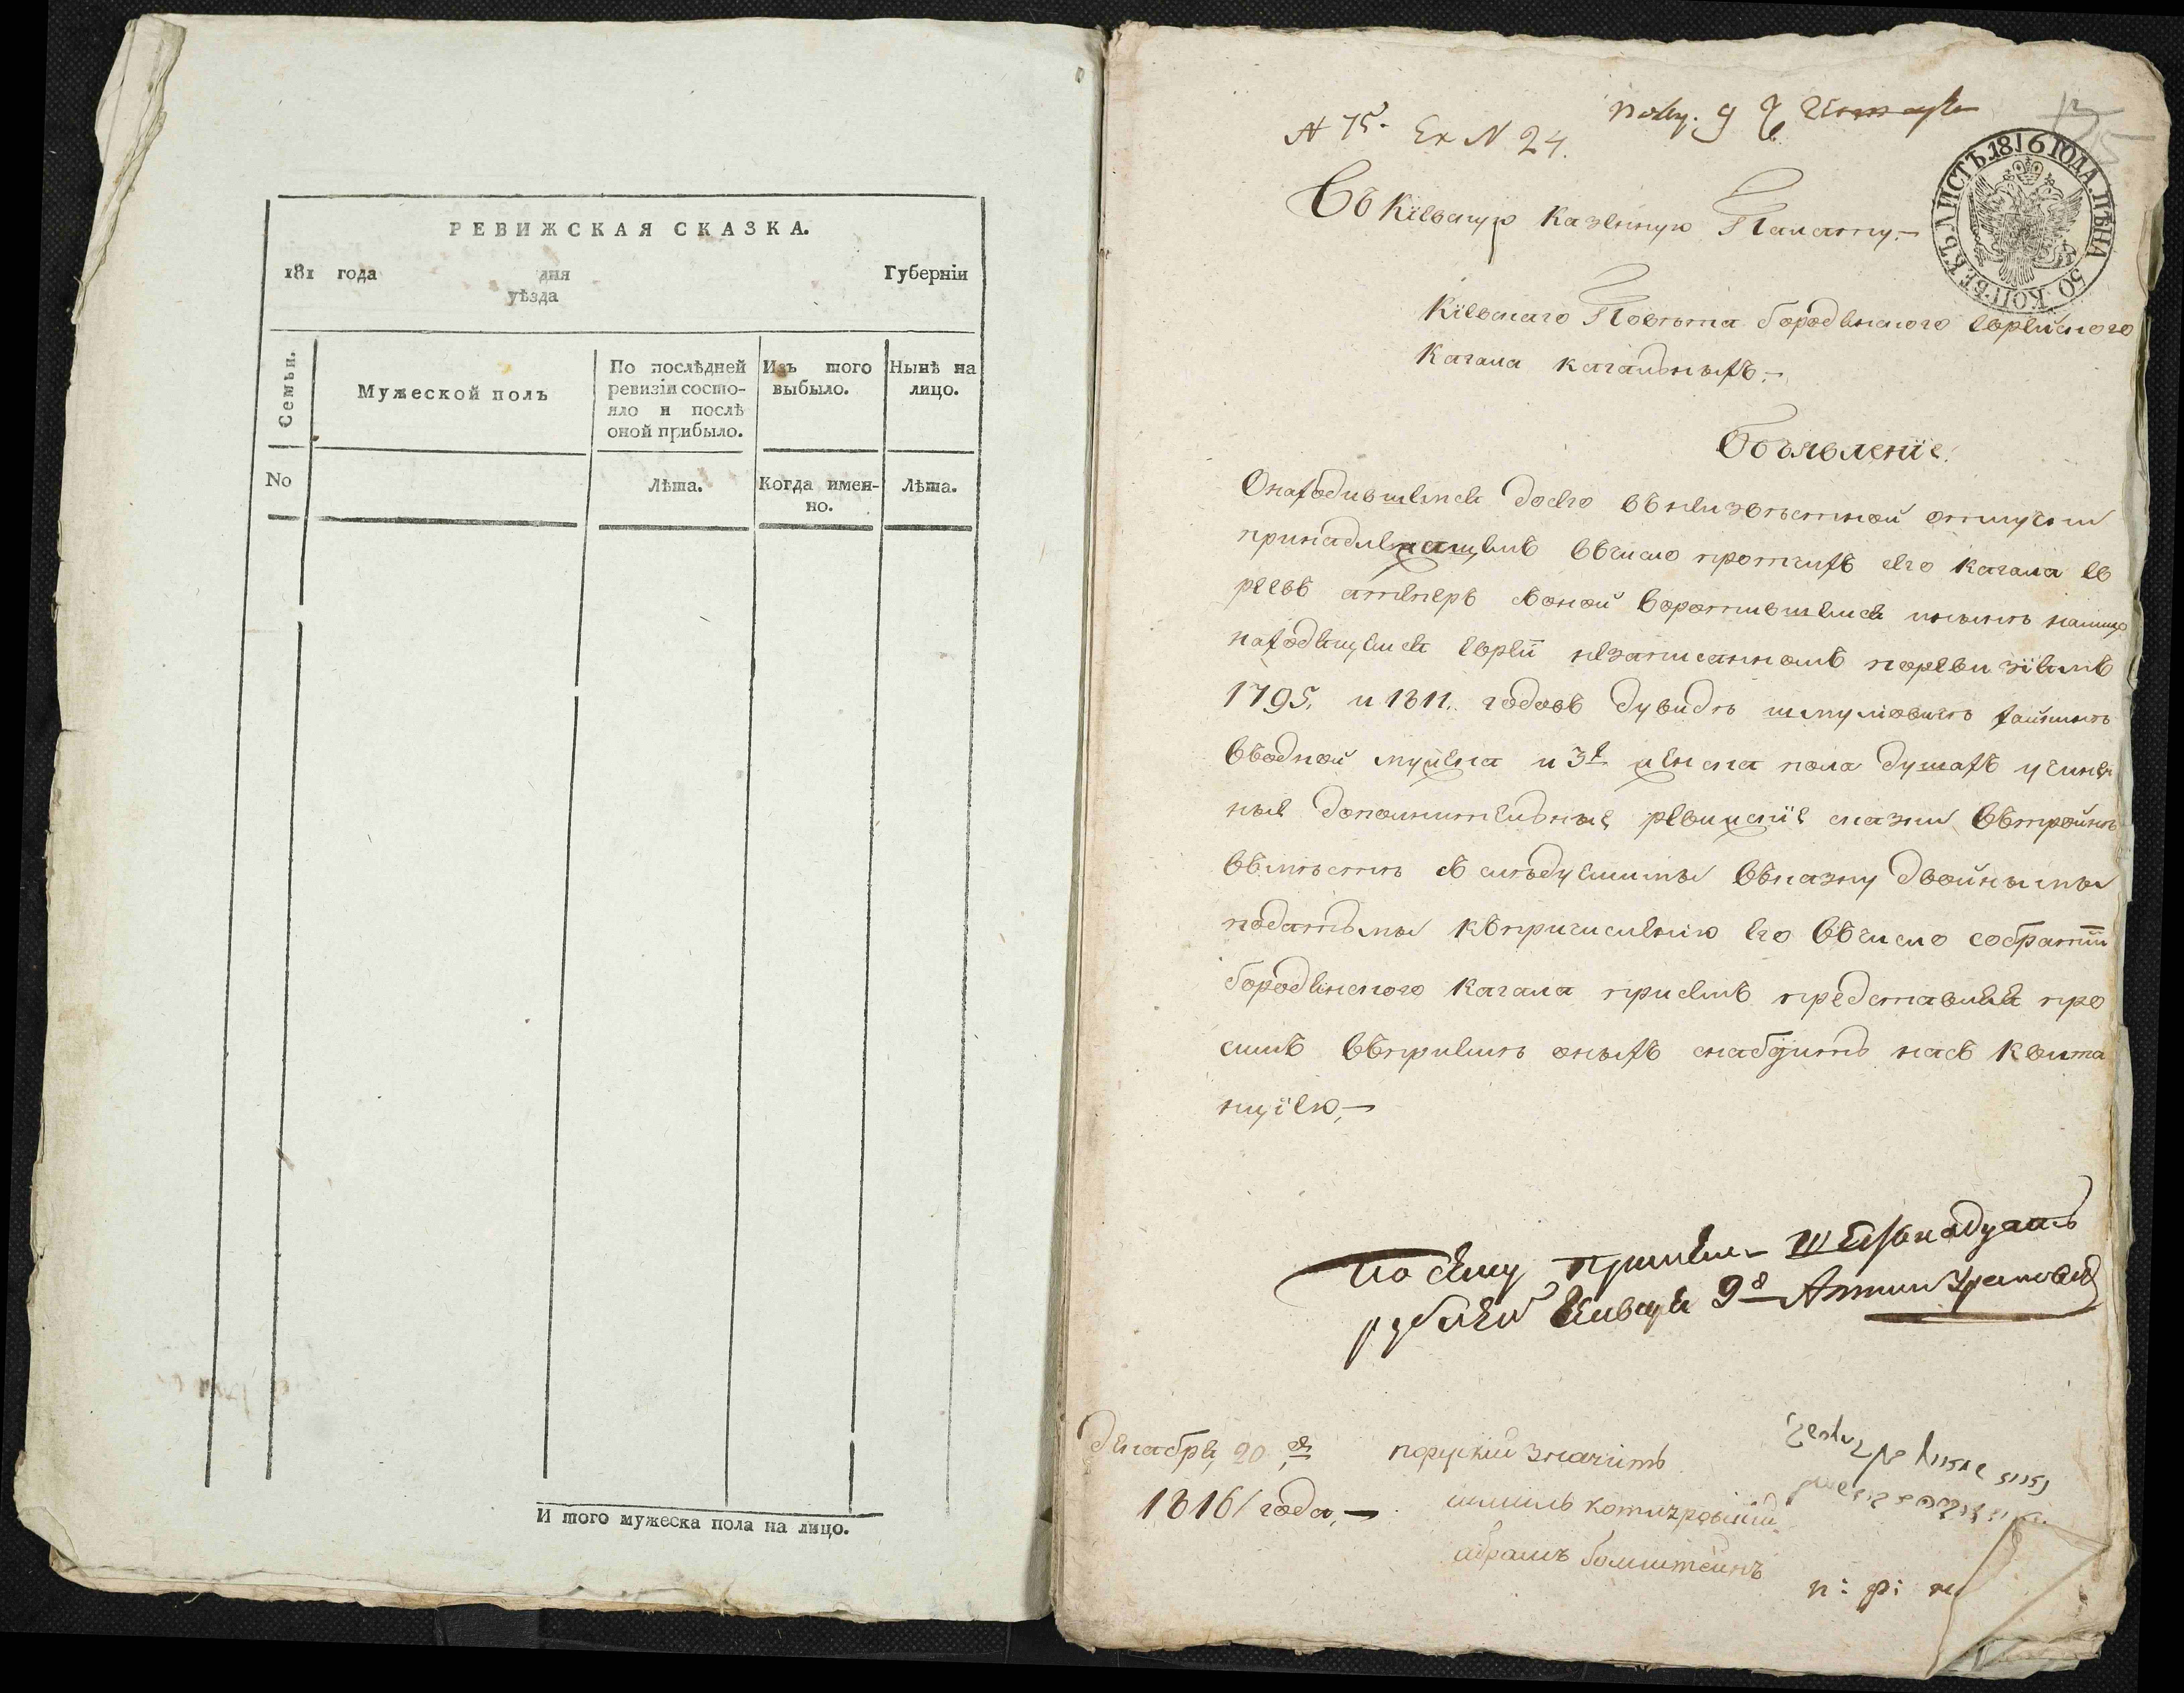 РЕВИЖСКАЯ СКАЗКА.
181 года дня Губерніи
уѣзда
Семьи.
Мужеской полъ
По послѣдней ревизіи состо-
яло и послѣ
оной прибыло.
Изъ того
выбыло.
Нынѣ на
лицо.
No
Лѣта.
Когда имен-
но.
Лѣта.
И того мужеска пола на лицо.
N 75. Ex N 24.
ЛИСТЪ 1816 ГОДА. ЦѢНА 50 КОПѢЕКЪ.
Въ Кіевскую Казенную Палату.—
Кіевскаго Повѣта бородянского еврейского
Кагала кагальныхъ.—
Объявленіе.
Онаходившемся досего въ неизвѣстной отлучки
принадлежащемъ въ число протчихъ сего кагала ев
реевъ а теперь съ оной воротившемся и нынѣ налицо
находящемся еврей незаписанномъ поревизіямъ
1795. и 1811. годовъ дувидѣ шмулiовичѣ
въ одной мужеска и 3х женска пола душахъ учинен
ные дополнительные ревижскіе сказки въ тройнѣ
вмѣстѣ съ слѣдуемымы въ казну двойнымы
податьмы къ причисленію его въ число собратій
бородянского кагала присемъ представляя про
симъ въ приемѣ оныхъ снабдить насъ квита
нціею.—
По сему
рублей Января 9д
декабря 20 д
1816 года.—
шмиль
абрамъ